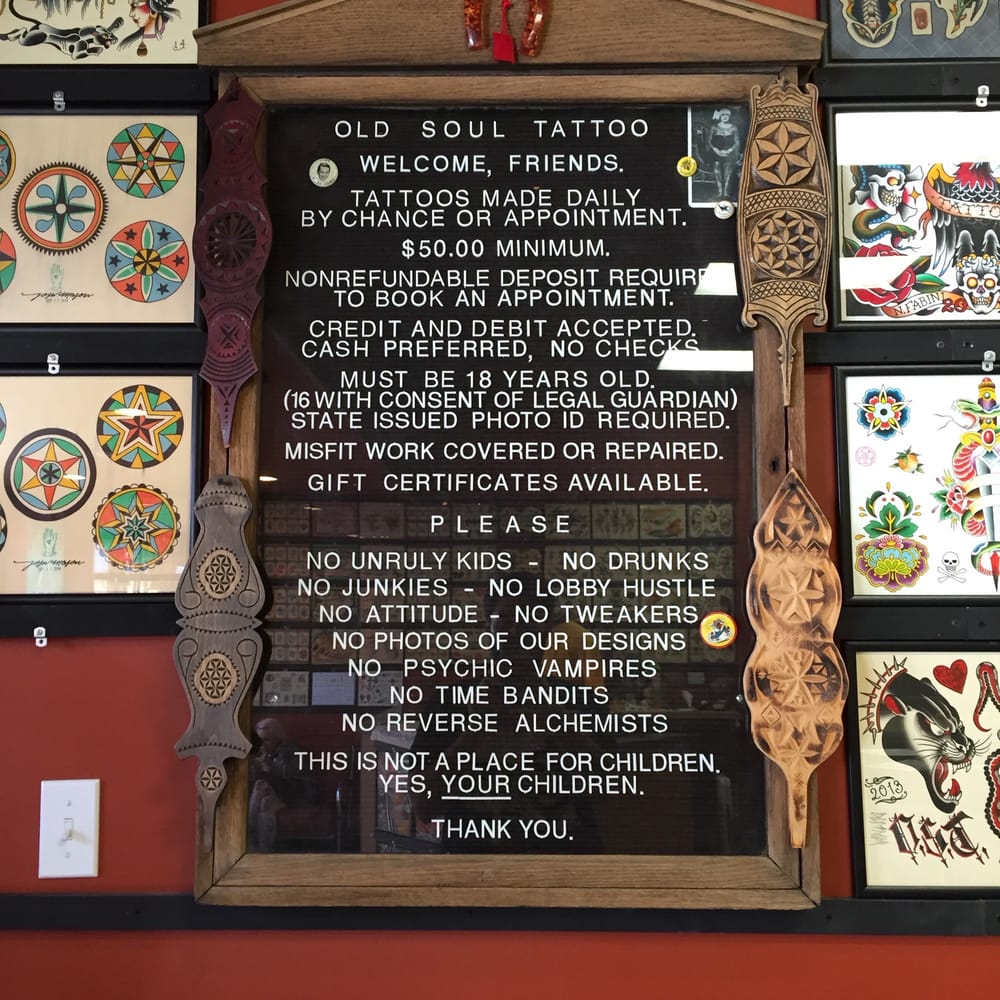 OLD SOUL TATTOO
WELCOME, FRIENDS.
TATTOOS MADE DAILY
BY CHANCE OR APPOINTMENT.
$50.00 MINIMUM.
NONREFUNDABLE DEPOSIT REQUIRE
TO BOOK AN APPOINTMENT.
CREDIT AND DEBIT ACCEPTED.
CASH PREFERRED, NO CHECKS
MUST BE 18 YEARS OLD.
(16 WITH CONSENT OF LEGAL GUARDIAN)
STATE ISSUED PHOTO ID REQUIRED.
MISFIT WORK COVERED OR REPAIRED.
GIFT CERTIFICATES AVAILABLE.
PLEASE
NO UNRULY KIDS - NO DRUNKS
NO JUNKIES - NO LOBBY HUSTLE
NO ATTITUDE - NO TWEAKERS
NO PHOTOS OF OUR DESIGNS
NO PSYCHIC VAMPIRES
NO TIME BANDITS
NO REVERSE ALCHEMISTS
THIS IS NOT A PLACE FOR CHILDREN.
YES, YOUR CHILDREN.
THANK YOU.
N.FABIN
2013
O.S.T.